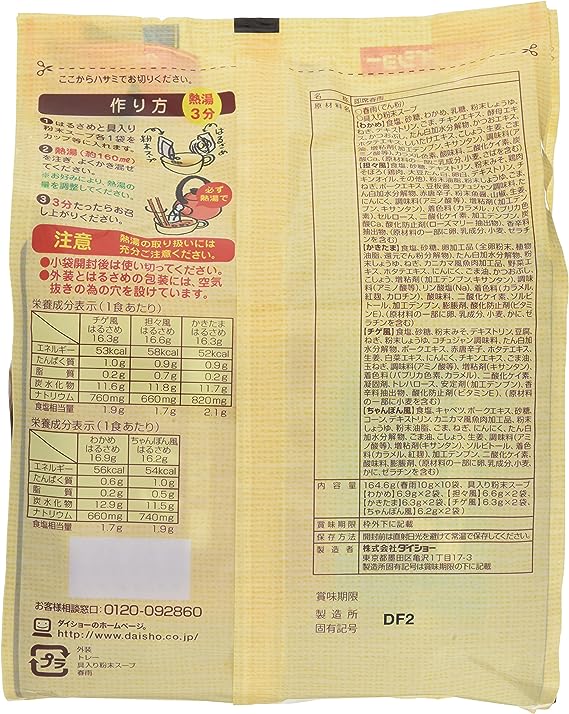 ここからハサミでお切りください。
作り方
熱湯
3分
1 はるさめと具入り
粉末スープ各1袋を
カップ等に入れます。
はるさめ
粉末スープ
2 熱湯(約160㎖)
を注ぎ、よくかき混ぜ
てください。
※お好みにより、熱湯の
量を調整してください。
必ず
熱湯で
3 3分たったらお召
し上がりください。
注意
熱湯の取り扱いには
充分ご注意ください。
●小袋開封後は使い切ってください。
●外装とはるさめの包装には、空気
抜きの為の穴を設けています。
栄養成分表示(1食あたり)
チゲ風 はるさめ 16.3g 担々風 はるさめ 16.6g かきたま はるさめ 16.3g
エネルギー 53kcal 58kcal 52kcal
たんぱく質 1.0g 0.9g 0.9g
脂質 0.2g 0.7g 0.2g
炭水化物 11.6g 11.8g 11.7g
ナトリウム 760mg 660mg 820mg
食塩相当量 1.9g 1.7g 2.1g
栄養成分表示(1食あたり)
わかめ はるさめ 16.9g ちゃんぽん風 はるさめ 16.2g
エネルギー 56kcal 54kcal
たんぱく質 0.6g 1.0g
脂質 0.2g 0.5g
炭水化物 12.9g 11.5g
ナトリウム 660mg 740mg
食塩相当量 1.7g 1.9g
お客様相談窓口:0120-092860
ダイショーのホームページ。
http://www.daisho.co.jp/
プラ
外装
トレー
具入り粉末スープ
春雨
名称 即席春雨
原材料名
○春雨(でん粉)
○具入り粉末スープ
【わかめ】食塩、砂糖、わかめ、乳糖、粉末しょうゆ、
【担々風】食塩、砂糖、
【かきたま】食塩、砂糖、卵加工品(全卵粉末、植物
油脂、還元でん粉分解物)、たん白加水分解物、粉
末しょうゆ、ねぎ、カニカマ風魚肉加工品、野菜エ
キス、ホタテエキス、にんにく、ごま油、かつおぶし、
こしょう、増粘剤(加工デンプン、キサンタン)、調
味料(アミノ酸等)、リン酸塩(Na)、着色料(カラメル、
紅麹、カロチン)、酸味料、二酸化ケイ素、ソルビ
トール、加工デンプン、膨脹剤、酸化防止剤(ビタミ
ンE)、(原材料の一部に卵、乳成分、小麦、かに、ゼ
ラチンを含む)
【チゲ風】食塩、砂糖、粉末みそ、デキストリン、豆腐、
ねぎ、粉末しょうゆ、コチュジャン調味料、たん白加
水分解物、ポークエキス、赤唐辛子、ホタテエキス、
生姜、白菜エキス、にんにく、チキンエキス、ごま油、
玉ねぎ、調味料(アミノ酸等)、増粘剤(キサンタン)、
着色料(パプリカ色素、カラメル)、二酸化ケイ素、
凝固剤、トレハロース、安定剤(加工デンプン)、香
辛料抽出物、酸化防止剤(ビタミンE)、(原材料の
一部に小麦を含む)
【ちゃんぽん風】食塩、キャベツ、ポークエキス、砂糖、
コーン、デキストリン、カニカマ風魚肉加工品、粉末
しょうゆ、粉末油脂、ごま、ねぎ、にんにく、たん白
加水分解物、ごま油、こしょう、生姜、調味料(アミ
ノ酸等)、増粘剤(キサンタン)、ソルビトール、着色
料(カラメル、紅麹)、加工デンプン、二酸化ケイ素、
酸味料、膨脹剤、(原材料の一部に卵、乳成分、小麦、
かに、ゼラチンを含む)
内容量 164.6g(春雨10g×10袋、具入り粉末スープ
【わかめ】6.9g×2袋、【担々風】6.6g×2袋、
【かきたま】6.3g×2袋、【チゲ風】6.3g×2袋、
【ちゃんぽん風】6.2g×2袋)
賞味期限 枠外下に記載
保存方法 開封前は直射日光を避けて常温で保存してください。
製造者 株式会社ダイショー
東京都墨田区亀沢1丁目17-3
製造所固有記号は賞味期限の下に記載
賞味期限
製造所
固有記号
DF2